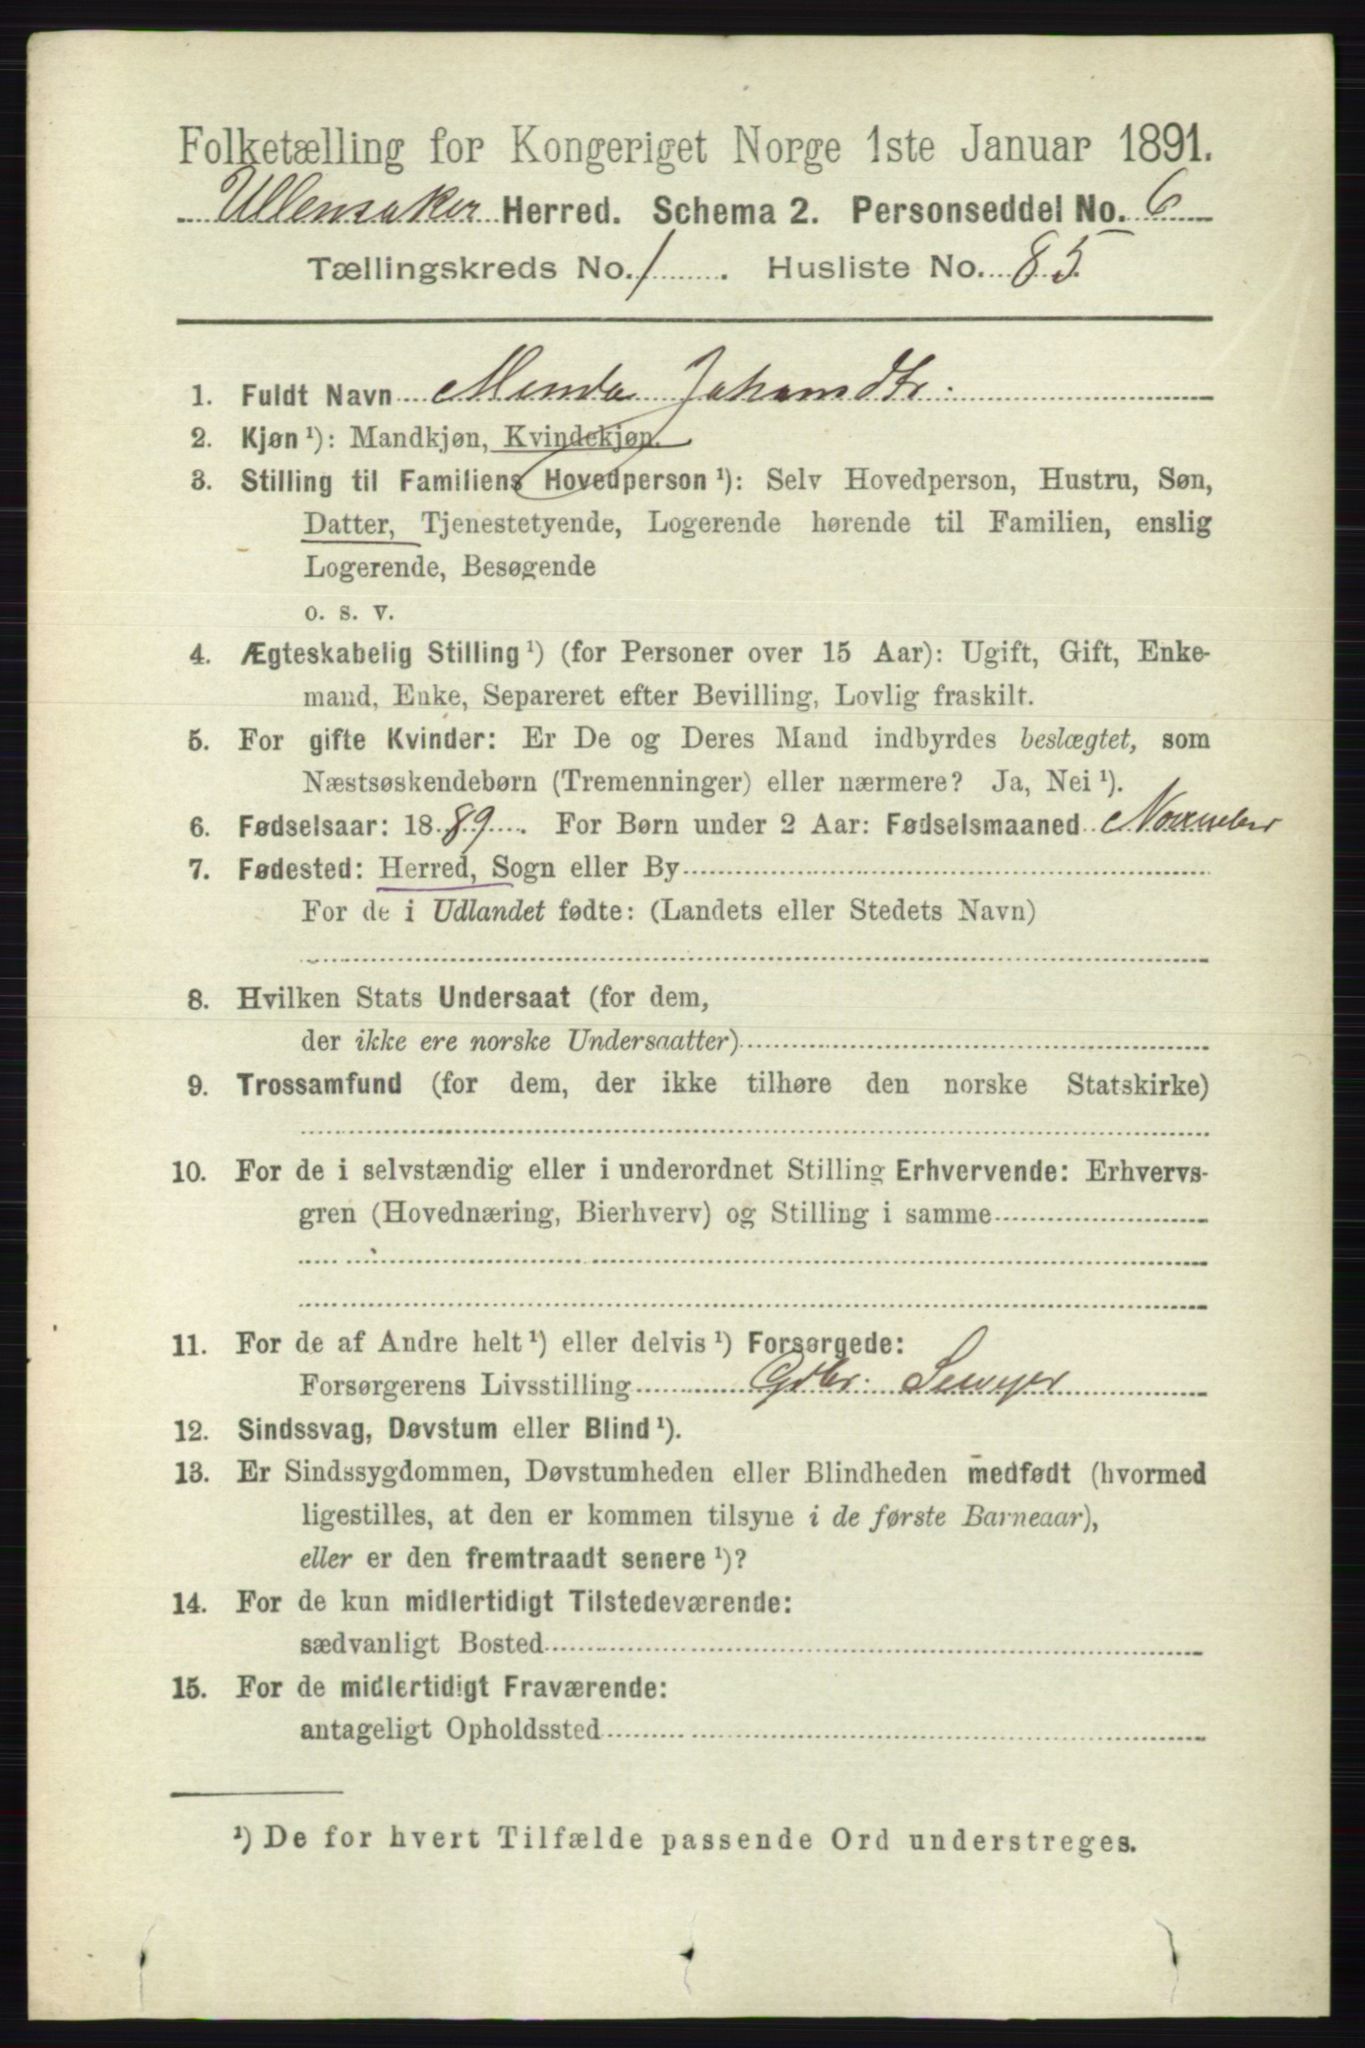 Folketælling for Kongeriget Norge 1ste Januar 1891.
Ullensaker Herred. Schema 2. Personseddel No. 6
Tællingskreds No. 1. Husliste No. 85.
1. Fuldt Navn Minda Johansdtr.
2. Kjøn ¹): Mandkjøn, Kvindekjøn.
3. Stilling til Familiens Hovedperson ¹): Selv Hovedperson, Hustru, Søn,
Datter, Tjenestetyende, Logerende hørende til Familien, enslig
Logerende, Besøgende
o. s. v.
4. Ægteskabelig Stilling ¹) (for Personer over 15 Aar): Ugift, Gift, Enke-
mand, Enke, Separeret efter Bevilling, Lovlig fraskilt.
5. For gifte Kvinder: Er De og Deres Mand indbyrdes beslægtet, som
Næstsøskendebørn (Tremenninger) eller nærmere? Ja, Nei ¹).
6. Fødselsaar: 1889. For Børn under 2 Aar: Fødselsmaaned November
7. Fødested: Herred, Sogn eller By
For de i Udlandet fødte: (Landets eller Stedets Navn)
8. Hvilken Stats Undersaat (for dem,
der ikke ere norske Undersaatter)
9. Trossamfund (for dem, der ikke tilhøre den norske Statskirke)
10. For de i selvstændig eller i underordnet Stilling Erhvervende: Erhvervs-
gren (Hovednæring, Bierhverv) og Stilling i samme
11. For de af Andre helt ¹) eller delvis ¹) Forsørgede:
Forsørgerens Livsstilling Gdbr.
12. Sindssvag, Døvstum eller Blind ¹).
13. Er Sindssygdommen, Døvstumheden eller Blindheden medfødt (hvormed
ligestilles, at den er kommen tilsyne i de første Barneaar),
eller er den fremtraadt senere ¹)?
14. For de kun midlertidigt Tilstedeværende:
sædvanligt Bosted
15. For de midlertidigt Fraværende:
antageligt Opholdssted
¹) De for hvert Tilfælde passende Ord understreges.